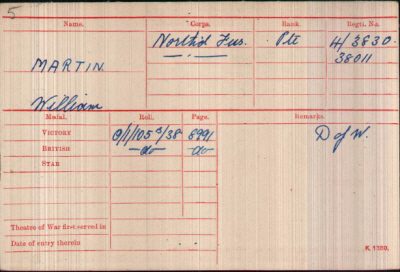 5
Name. Corps. Rank. Regtl. No.
MARTIN. North'd Fus. Pte 4/3830.
38011
William
Medal. Roll. Page. Remarks.
VICTORY O/1/105 B/38 8991 D of W.
BRITISH -do- -do-
STAR
Theatre of War first served in
Date of entry therein
K. 1380.